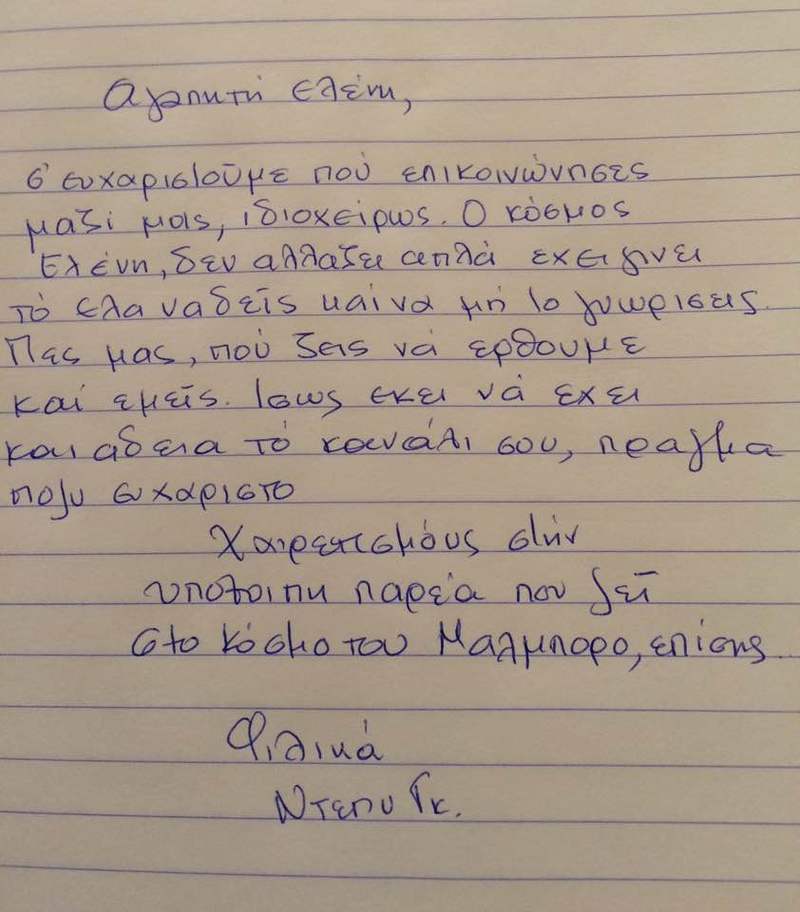 Αγαπητή Ελένη,
σ' ευχαριστοῦμε πού επικοινώνησες
μαζί μας, ιδιοχείρως. Ο κόσμος
Ελένη, δεν αλλάζει απλά εχει γινει
τό ελα να δεῖς καί να μή το γνωρισεις.
Πες μας, πού ζεις νά ερθουμε
καί εμεῖς. Ισως εκει νά εχει
και αδεια τό κανάλι σου, πραγμα
πολυ ευχαριστο
Χαιρετισμόυς στήν
υπολοιπη παρεα που ζεῖ
στο κόσμο του Μαλμπορο, επίσης.
Φιλικά
Ντεπυ Γκ.